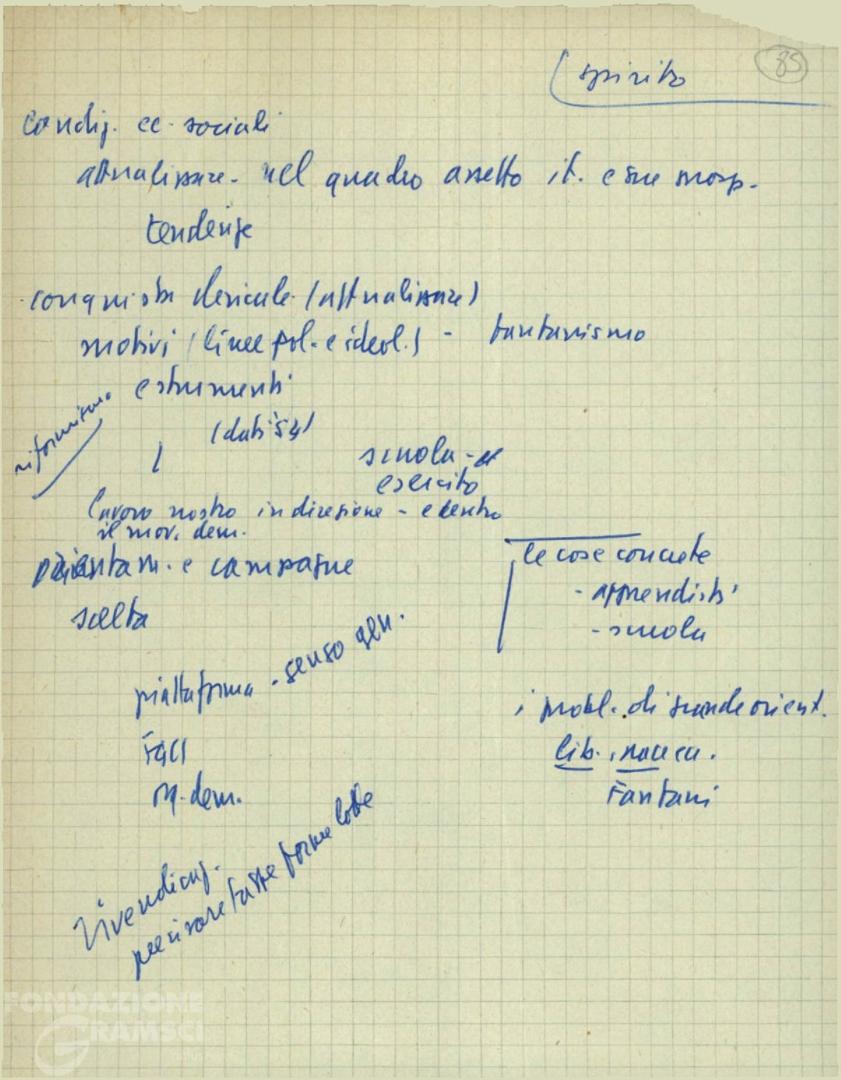 spirito
85
condiz. ec. sociali
attualizzare - nel quadro assetto it. e sue prosp.
tendenze
- conquista clericale (attualizzare)
motivi (linee pol. e ideol.) - fanfanismo
e strumenti
riformismo
(dati '54)
scuola -
esercito
lavoro nostro in direzione - e dentro
il mov. dem.
orientam. e campagne
scelta
le cose concrete
- apprendisti
- scuola
piattaforma - senso gen.
i probl. di grande orient.
FGCI
lib.,
Fanfani
rivendicaz.
precisare forme lotte
FONDAZIONE
GRAMSCI